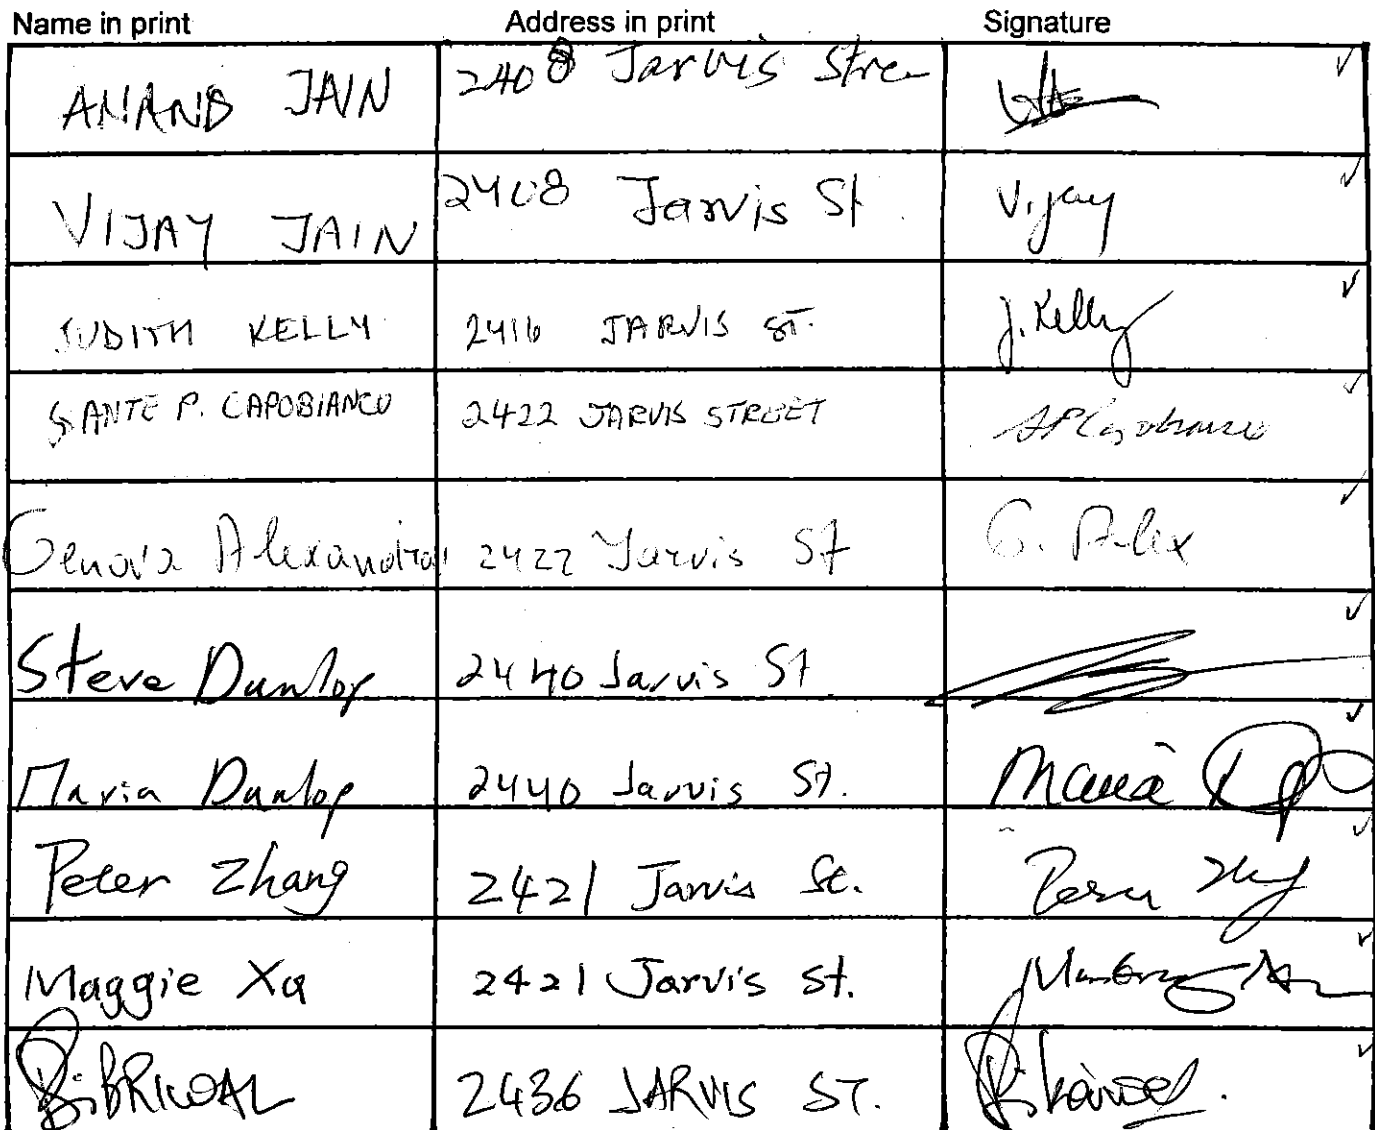 Name in print Address in print Signature
ANAND JAIN 2408 Jarvis Stree
VIJAY JAIN 2408 Jarvis St. Vijay
JUDITH KELLY 2416 JARVIS ST. J. Kelly
SANTE P. CAPOBIANCO 2422 JARVIS STREET
Genova Alexandra 2422 Jarvis St G. Alex
Steve Dunlop 2440 Jarvis St
Maria Dunlop 2440 Jarvis St. Maria
Peter Zhang 2421 Jarvis St.
Maggie Xa 2421 Jarvis St.
2436 JARVIS ST.